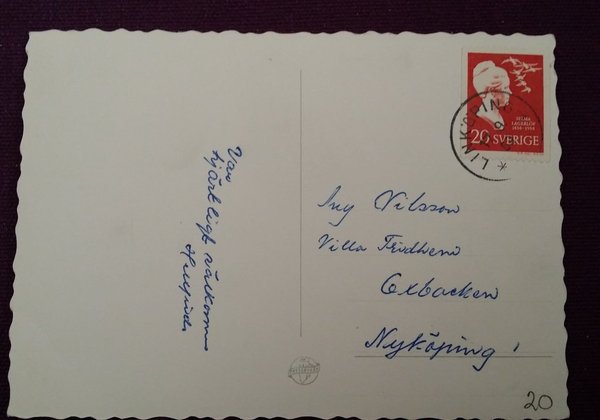 Var
hjärtligt välkommen
SELMA
LAGERLÖF
1858-1958
20 SVERIGE
LINKÖPING
Ing Nilsson
Villa Fridhem
Oxbacken
Nyköping 1
20